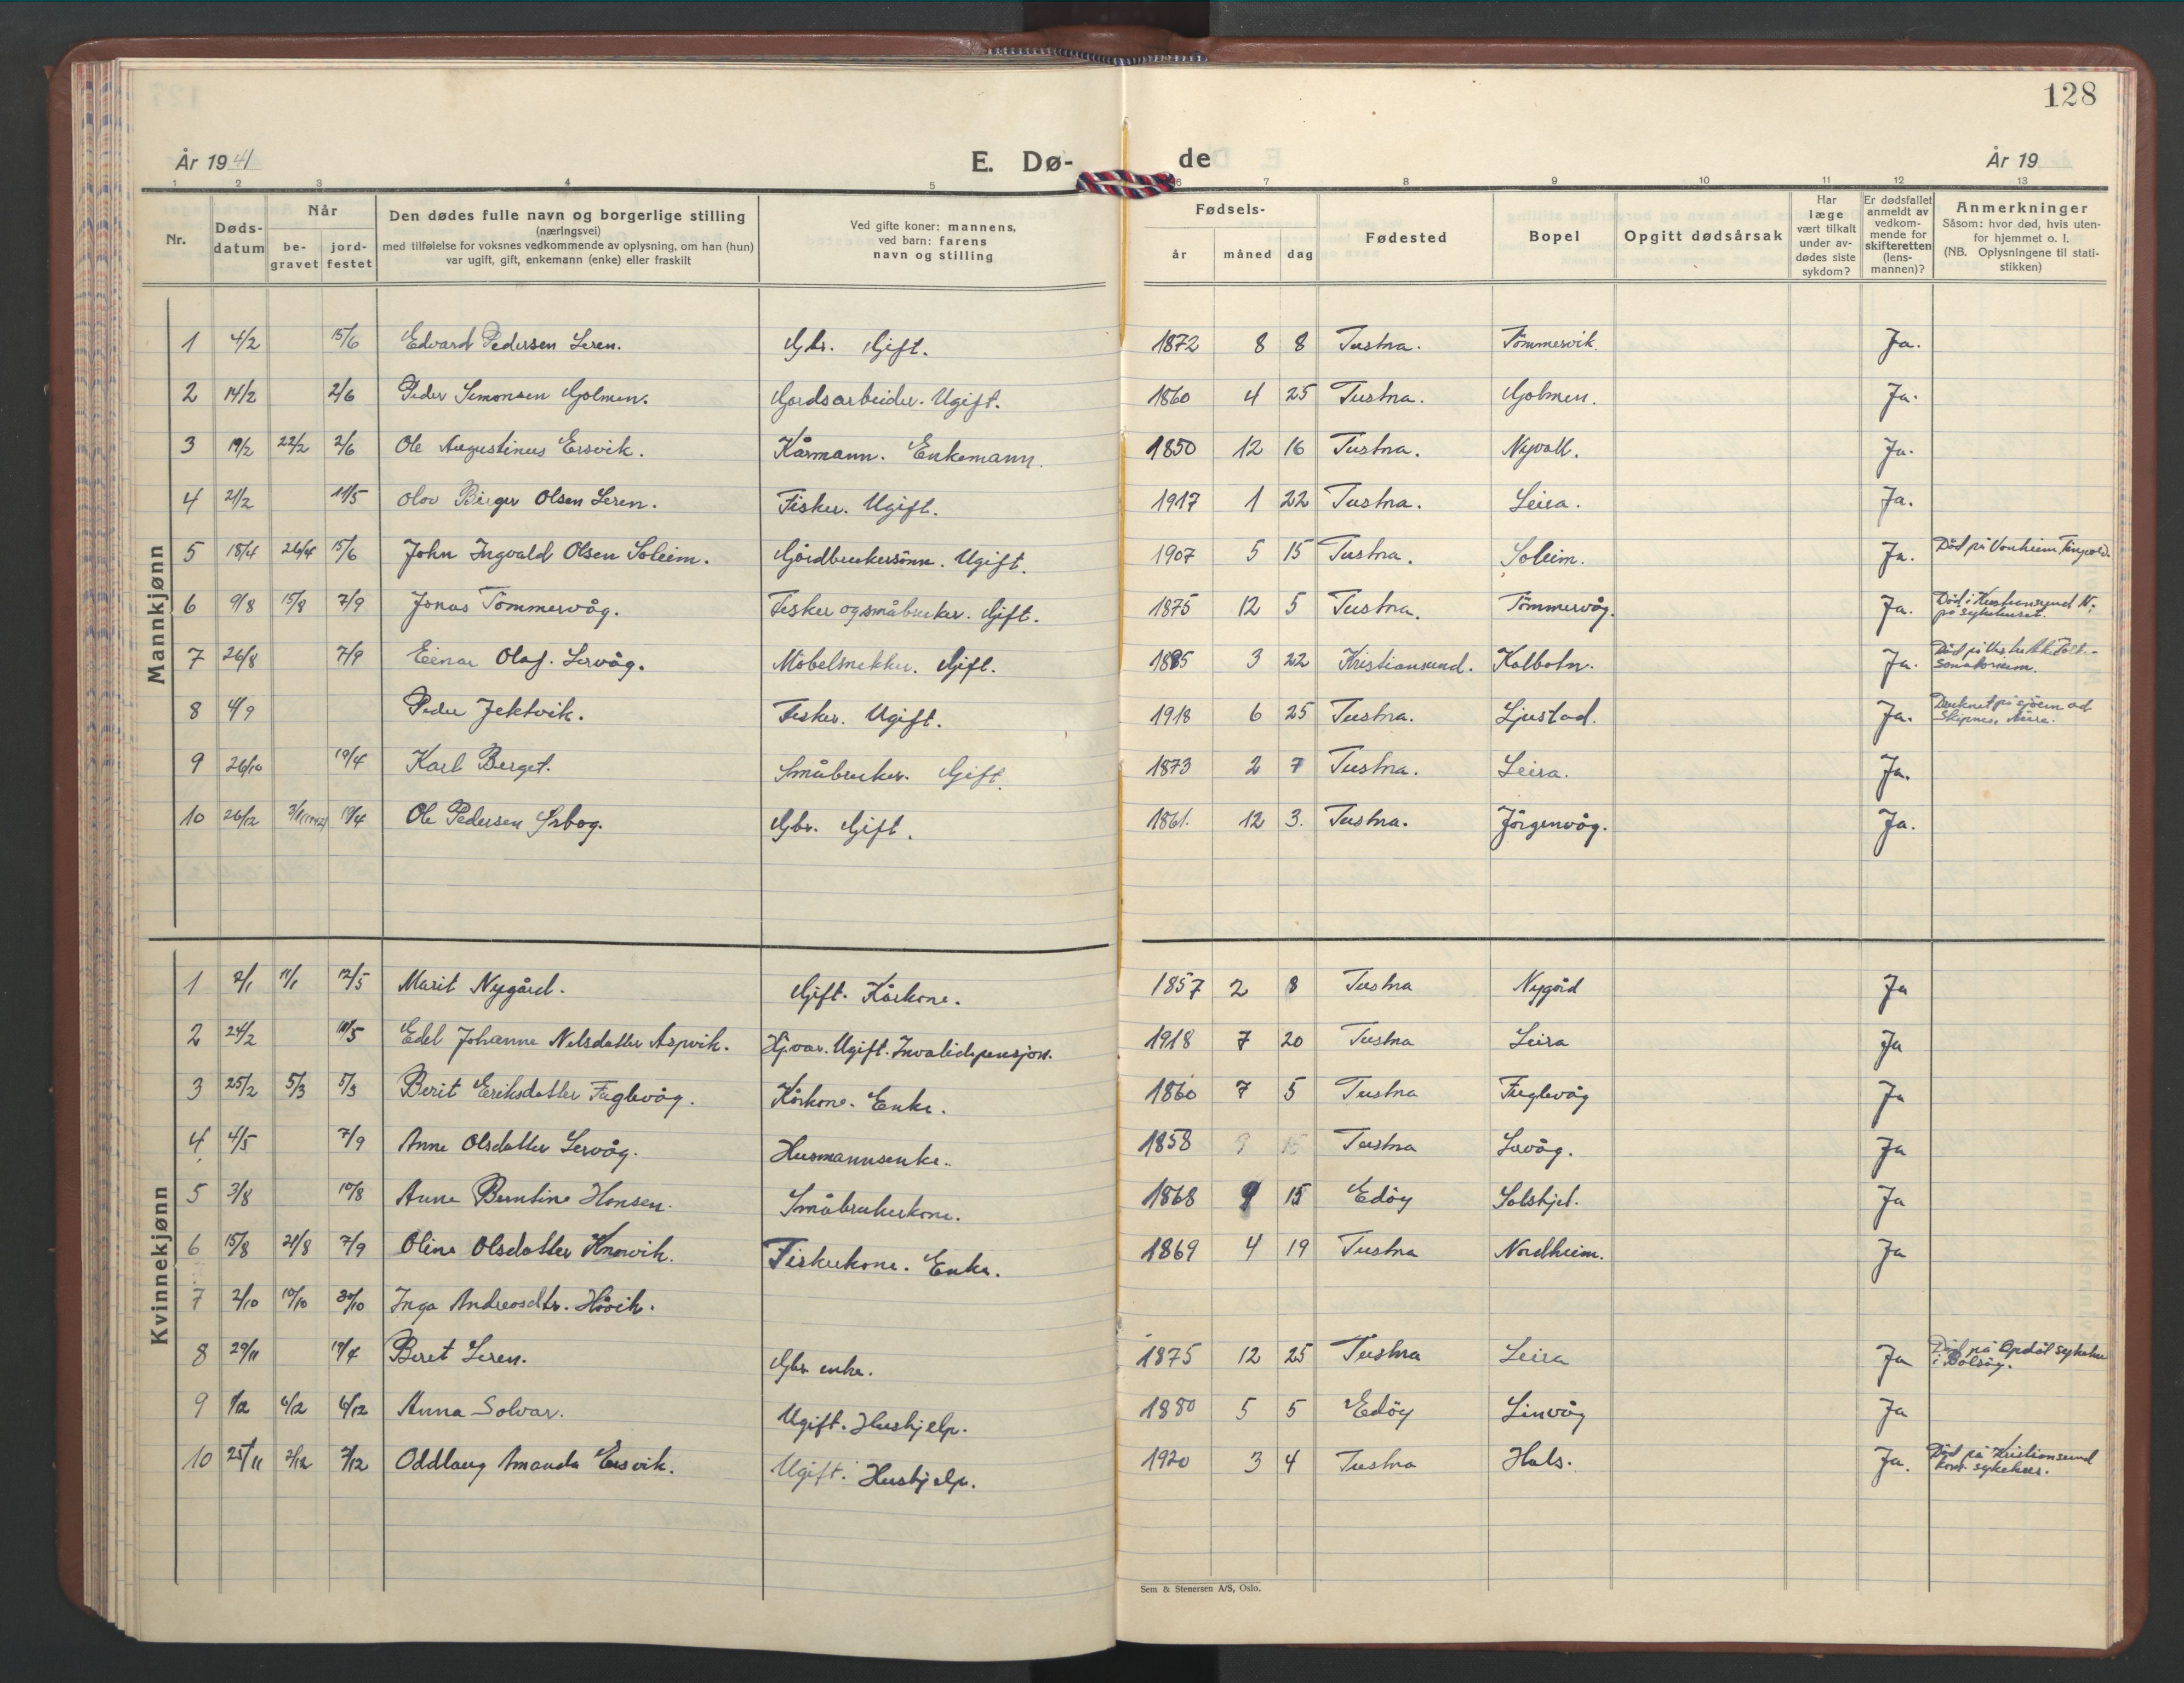 128
År 1941
E. Dø-
de
År 19
1 2 3 4 5 6 7 8 9 10 11 12 13
Nr.
Døds-
datum
Når
be-
gravet
jord-
festet
Den dødes fulle navn og borgerlige stilling
(næringsvei)
med tilføielse for voksnes vedkommende av oplysning, om han (hun)
var ugift, gift, enkemann (enke) eller fraskilt
Ved gifte koner: mannens,
ved barn: farens
navn og stilling
Fødsels-
år måned dag
Fødested
Bopel
Opgitt dødsårsak
Har
læge
vært tilkalt
under av-
dødes siste
sykdom?
Er dødsfallet
anmeldt av
vedkom-
mende for
skifteretten
(lens-
mannen)?
Anmerkninger
Såsom: hvor død, hvis uten-
for hjemmet o. l.
(NB. Oplysningene til stati-
stikken)
Mannkjønn
1 4/2 15/6 Edvard Pedersen Leren. Gbr. Gift. 1872 8 8 Tustna. Tömmervik. Ja.
2 14/2 2/6 Peder Simonsen Golmen. Gardsarbeider. Ugift. 1860 4 25 Tustna. Golmen. Ja.
3 19/2 22/2 2/6 Ole Augustinus Ersvik. Kårmann. Enkemann. 1850 12 16 Tustna. Nyvoll. Ja.
4 21/2 11/5 Olav Birger Olsen Leren. Fisker. Ugift. 1917 1 22 Tustna. Leira. Ja.
5 18/4 26/4 15/6 John Ingvald Olsen Soleim. Gårdbrukersönn. Ugift. 1907 5 15 Tustna. Soleim. Ja. Död på Vonheim, Tingvold.
6 9/8 15/8 7/9 Jonas Tömmervåg. Fisker og småbruker. Gift. 1875 12 5 Tustna. Tömmervåg. Ja. Död i Kristiansund N.
på sykehuset.
7 26/8 7/9 Einar Olaf. Lervåg. Möbelsnekker. Gift. 1885 3 22 Kristiansund. Kolbotn. Ja. Död på
sanatorium.
8 4/9 Peder Jektvik. Fisker. Ugift. 1918 6 25 Tustna. Ljustad. Ja. Druknet på sjöen ved
Skipnes, Aure.
9 26/10 19/4 Karl Berget. Småbruker. Gift. 1873 2 7 Tustna. Leira. Ja.
10 26/12 3/1(1942) 19/4 Ole Pedersen Yrbog. Gbr. Gift. 1861. 12 3. Tustna. Jörgenvåg. Ja.
Kvinnekjønn
1 2/1 11/1 12/5 Marit Nygård. Gift. Kårkone. 1857 2 8 Tustna Nygård Ja
2 24/2 11/5 Edel Johanne Nilsdatter Aspvik. Hj.vær. Ugift. Invalidepensjon. 1918 7 20 Tustna Leira Ja
3 25/2 5/3 5/3 Berit Eriksdatter Fuglevåg. Kårkone. Enke. 1860 7 5 Tustna Fuglevåg Ja
4 4/5 7/9 Anne Olsdatter Lervåg. Husmannsenke. 1858 9 15 Tustna Lervåg. Ja
5 3/8 10/8 Anne Berntine Hansen. Småbrukerkone. 1868 9 15 Edöy Solskjel. Ja
6 15/8 21/8 7/9 Oline Olsdatter Knarvik. Fiskerkone. Enke. 1869 4 19 Tustna Nordheim. Ja
7 2/10 10/10 30/10 Inga Andreasdtr. Håvik.
8 29/11 19/4 Beret Leren. Gbr. enke. 1875 12 25 Tustna Leira Ja Död på Opdöl sykehus
i Bolsöy.
9 1/12 6/12 6/12 Anna Solvar. Ugift. Hushjelp. 1880 5 5 Edöy Linvåg Ja
10 25/11 2/12 2/12 Oddlaug Amanda Ersvik. Ugift. Hushjelp. 1920 3 4 Tustna Hals. Ja. Död på Kristiansund
kom. sykehus.
Sem & Stenersen A/S, Oslo.